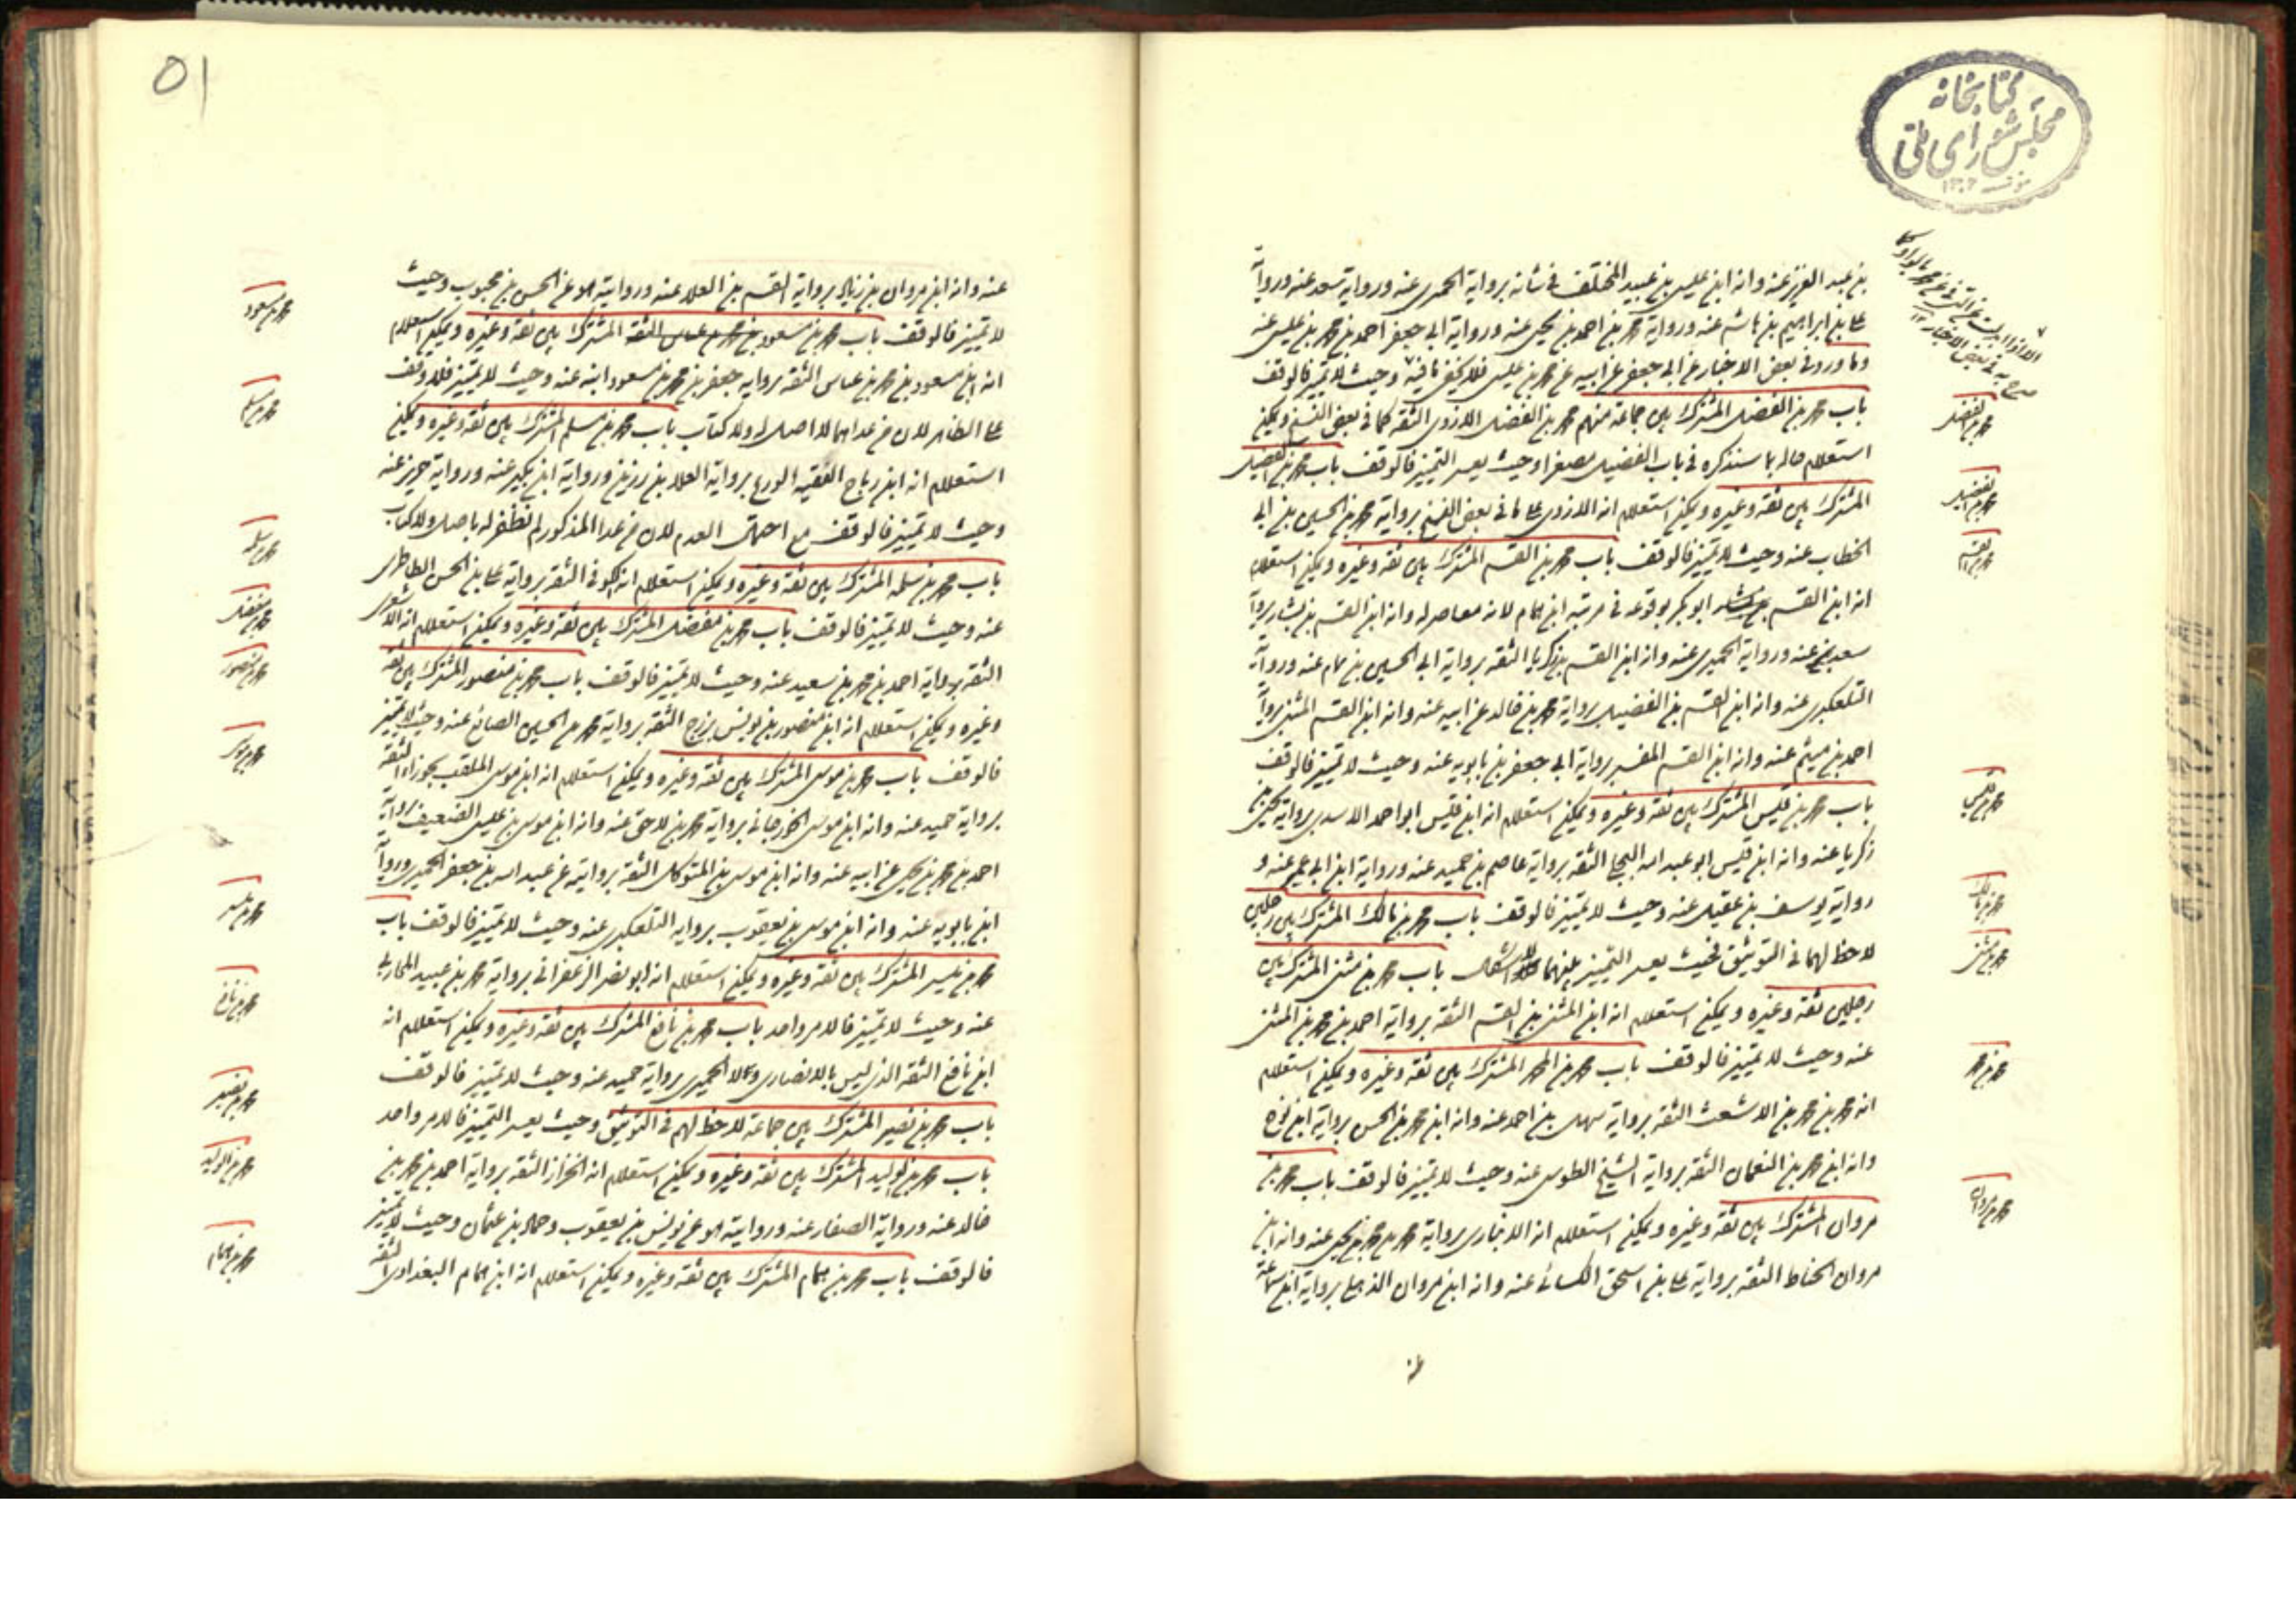 كتابخانه
مجلس شورای ملی
بن عبد العزيز عنه وانه ابن عيسى بن عبيد المختلف في شانه برواية الحميري عنه ورواية سعد عنه ورواية
على بن ابراهيم بن هاشم عنه ورواية محمد بن احمد بن يحيى عنه ورواية ابي جعفر احمد بن محمد بن عيسى عنه
وما ورد في بعض الاخبار عن ابي جعفر عن ابيه عن محمد بن عيسى فلا يخفى ما فيه وحيث لا تميز فالوقف
باب محمد بن الفضل المشترك بين جماعة منهم محمد بن الفضل الازدى الثقة كما في بعض النسخ ويمكن
استعلام حاله بما سنذكره في باب الفضيل مصغرا وحيث يعسر التميز فالوقف باب محمد بن الفضيل
المشترك بين ثقة وغيره ويمكن استعلام انه الازدى على ما في بعض النسخ برواية محمد بن الحسين بن ابي
الخطاب عنه وحيث لا تميز فالوقف باب محمد بن القسم المشترك بين ثقة وغيره ويمكن استعلام
انه ابن القسم ابو بكر بوقوعه في مرتبة ابن همام لانه معاصر له وانه ابن القسم بن بشار برواية
سعد عنه ورواية الحميري عنه وانه ابن القسم بن زكريا الثقة برواية ابي الحسين بن همام عنه ورواية
التلعكبرى عنه وانه ابن القسم بن الفضيل برواية محمد بن خالد عن ابيه عنه وانه ابن القسم المثنى برواية
احمد بن ميثم عنه وانه ابن القسم المفسر برواية ابي جعفر بن بابويه عنه وحيث لا تميز فالوقف
باب محمد بن قيس المشترك بين ثقة وغيره ويمكن استعلام انه ابن قيس ابو احمد الاسدى برواية يحيى بن
زكريا عنه وانه ابن قيس ابو عبد الله البجلي الثقة برواية عاصم بن حميد عنه ورواية ابن ابي عمير عنه و
رواية يوسف بن عقيل عنه وحيث لا تميز فالوقف باب محمد بن مالك المشترك بين رجلين
لا حظ لهما في التوثيق فحيث يعسر التميز بينهما فلا اشكال باب محمد بن مثنى المشترك بين
رجلين ثقة وغيره ويمكن استعلام انه ابن المثنى بن القسم الثقة برواية احمد بن محمد بن المثنى
عنه وحيث لا تميز فالوقف باب محمد بن محمد المشترك بين ثقة وغيره ويمكن استعلام
انه محمد بن محمد بن الاشعث الثقة برواية سهل بن احمد عنه وانه ابن محمد بن الحسن برواية ابن نوح
وانه ابن محمد بن النعمان الثقة برواية الشيخ الطوسي عنه وحيث لا تميز فالوقف باب محمد بن
مروان المشترك بين ثقة وغيره ويمكن استعلام انه الانباري برواية محمد بن يحيى عنه وانه ابن
مروان الحناط الثقة برواية على بن اسحق الكسائي عنه وانه ابن مروان الذهلي برواية ابن سماعة
عنه
محمد بن الفضل
محمد بن الفضيل
محمد بن القسم
محمد بن قيس
محمد بن مالك
محمد بن مثنى
محمد بن محمد
محمد بن مروان
٥١
عنه وانه ابن مروان بن زياد برواية القسم بن العلا عنه وروايته هو عن الحسن بن محبوب وحيث
لا تميز فالوقف باب محمد بن مسعود بن محمد بن عباس الثقة المشترك بين ثقة وغيره ويمكن استعلام
انه ابن مسعود بن محمد بن عباس الثقة برواية جعفر بن محمد بن مسعود ابنه عنه وحيث لا تميز فلا وقف
على الظاهر لان من عداهما لا اصل له ولا كتاب باب محمد بن مسلم المشترك بين ثقة وغيره ويمكن
استعلام انه ابن رباح الفقيه الورع برواية العلا بن رزين ورواية ابن بكير عنه ورواية حريز عنه
وحيث لا تميز فالوقف مع احتمال العدم لان من عدا المذكور لم نظفر له باصل ولا كتاب
باب محمد بن سلمه المشترك بين ثقة وغيره ويمكن استعلام انه الكوفي الثقة برواية على بن الحسن الطاطرى
عنه وحيث لا تميز فالوقف باب محمد بن مفضل المشترك بين ثقة وغيره ويمكن استعلام انه الاشعرى
الثقة برواية احمد بن محمد بن سعيد عنه وحيث لا تميز فالوقف باب محمد بن منصور المشترك بين ثقة
وغيره ويمكن استعلام انه ابن منصور بن يونس بزرج الثقة برواية محمد بن الحسين الصائغ عنه وحيث لا تميز
فالوقف باب محمد بن موسى المشترك بين ثقة وغيره ويمكن استعلام انه ابن موسى الملقب بخوراء الثقة
برواية حميد عنه وانه ابن موسى الخورجانى برواية محمد بن لاحق عنه وانه ابن موسى بن عيسى الضعيف برواية
احمد بن محمد بن يحيى عن ابيه عنه وانه ابن موسى بن المتوكل الثقة بروايته عن عبد الله بن جعفر الحميري ورواية
ابن بابويه عنه وانه ابن موسى بن يعقوب برواية التلعكبرى عنه وحيث لا تميز فالوقف باب
محمد بن ميسر المشترك بين ثقة وغيره ويمكن استعلام انه ابو نصر الزعفراني برواية محمد بن عبيد المحاربي
عنه وحيث لا تميز فالامر واحد باب محمد بن نافع المشترك بين ثقة وغيره ويمكن استعلام انه
ابن نافع الثقة الذي ليس بالانصارى ولا الحميري برواية حميد عنه وحيث لا تميز فالوقف
باب محمد بن نصير المشترك بين جماعة لا حظ لهم في التوثيق وحيث يعسر التميز فالامر واحد
باب محمد بن الوليد المشترك بين ثقة وغيره ويمكن استعلام انه الخزاز الثقة برواية احمد بن محمد بن
خالد عنه ورواية الصفار عنه وروايته هو عن يونس بن يعقوب وحماد بن عثمان وحيث لا تميز
فالوقف باب محمد بن همام المشترك بين ثقة وغيره ويمكن استعلام انه ابن همام البغدادى الثقة
محمد بن مسعود
محمد بن مسلم
محمد بن سلمه
محمد بن مفضل
محمد بن منصور
محمد بن موسى
محمد بن ميسر
محمد بن نافع
محمد بن نصير
محمد بن الوليد
محمد بن همام